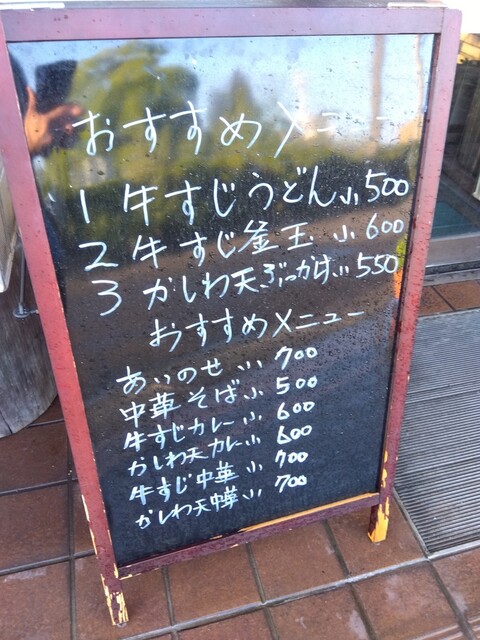 おすすめメニュー
1 牛すじうどん小500
2 牛すじ釜玉 小600
3 かしわ天ぶっかけ小550
おすすめメニュー
あいのせ 小 700
中華そば小 500
牛すじカレー小 600
かしわ天カレー小 600
牛すじ中華 小 700
かしわ天中華小 700